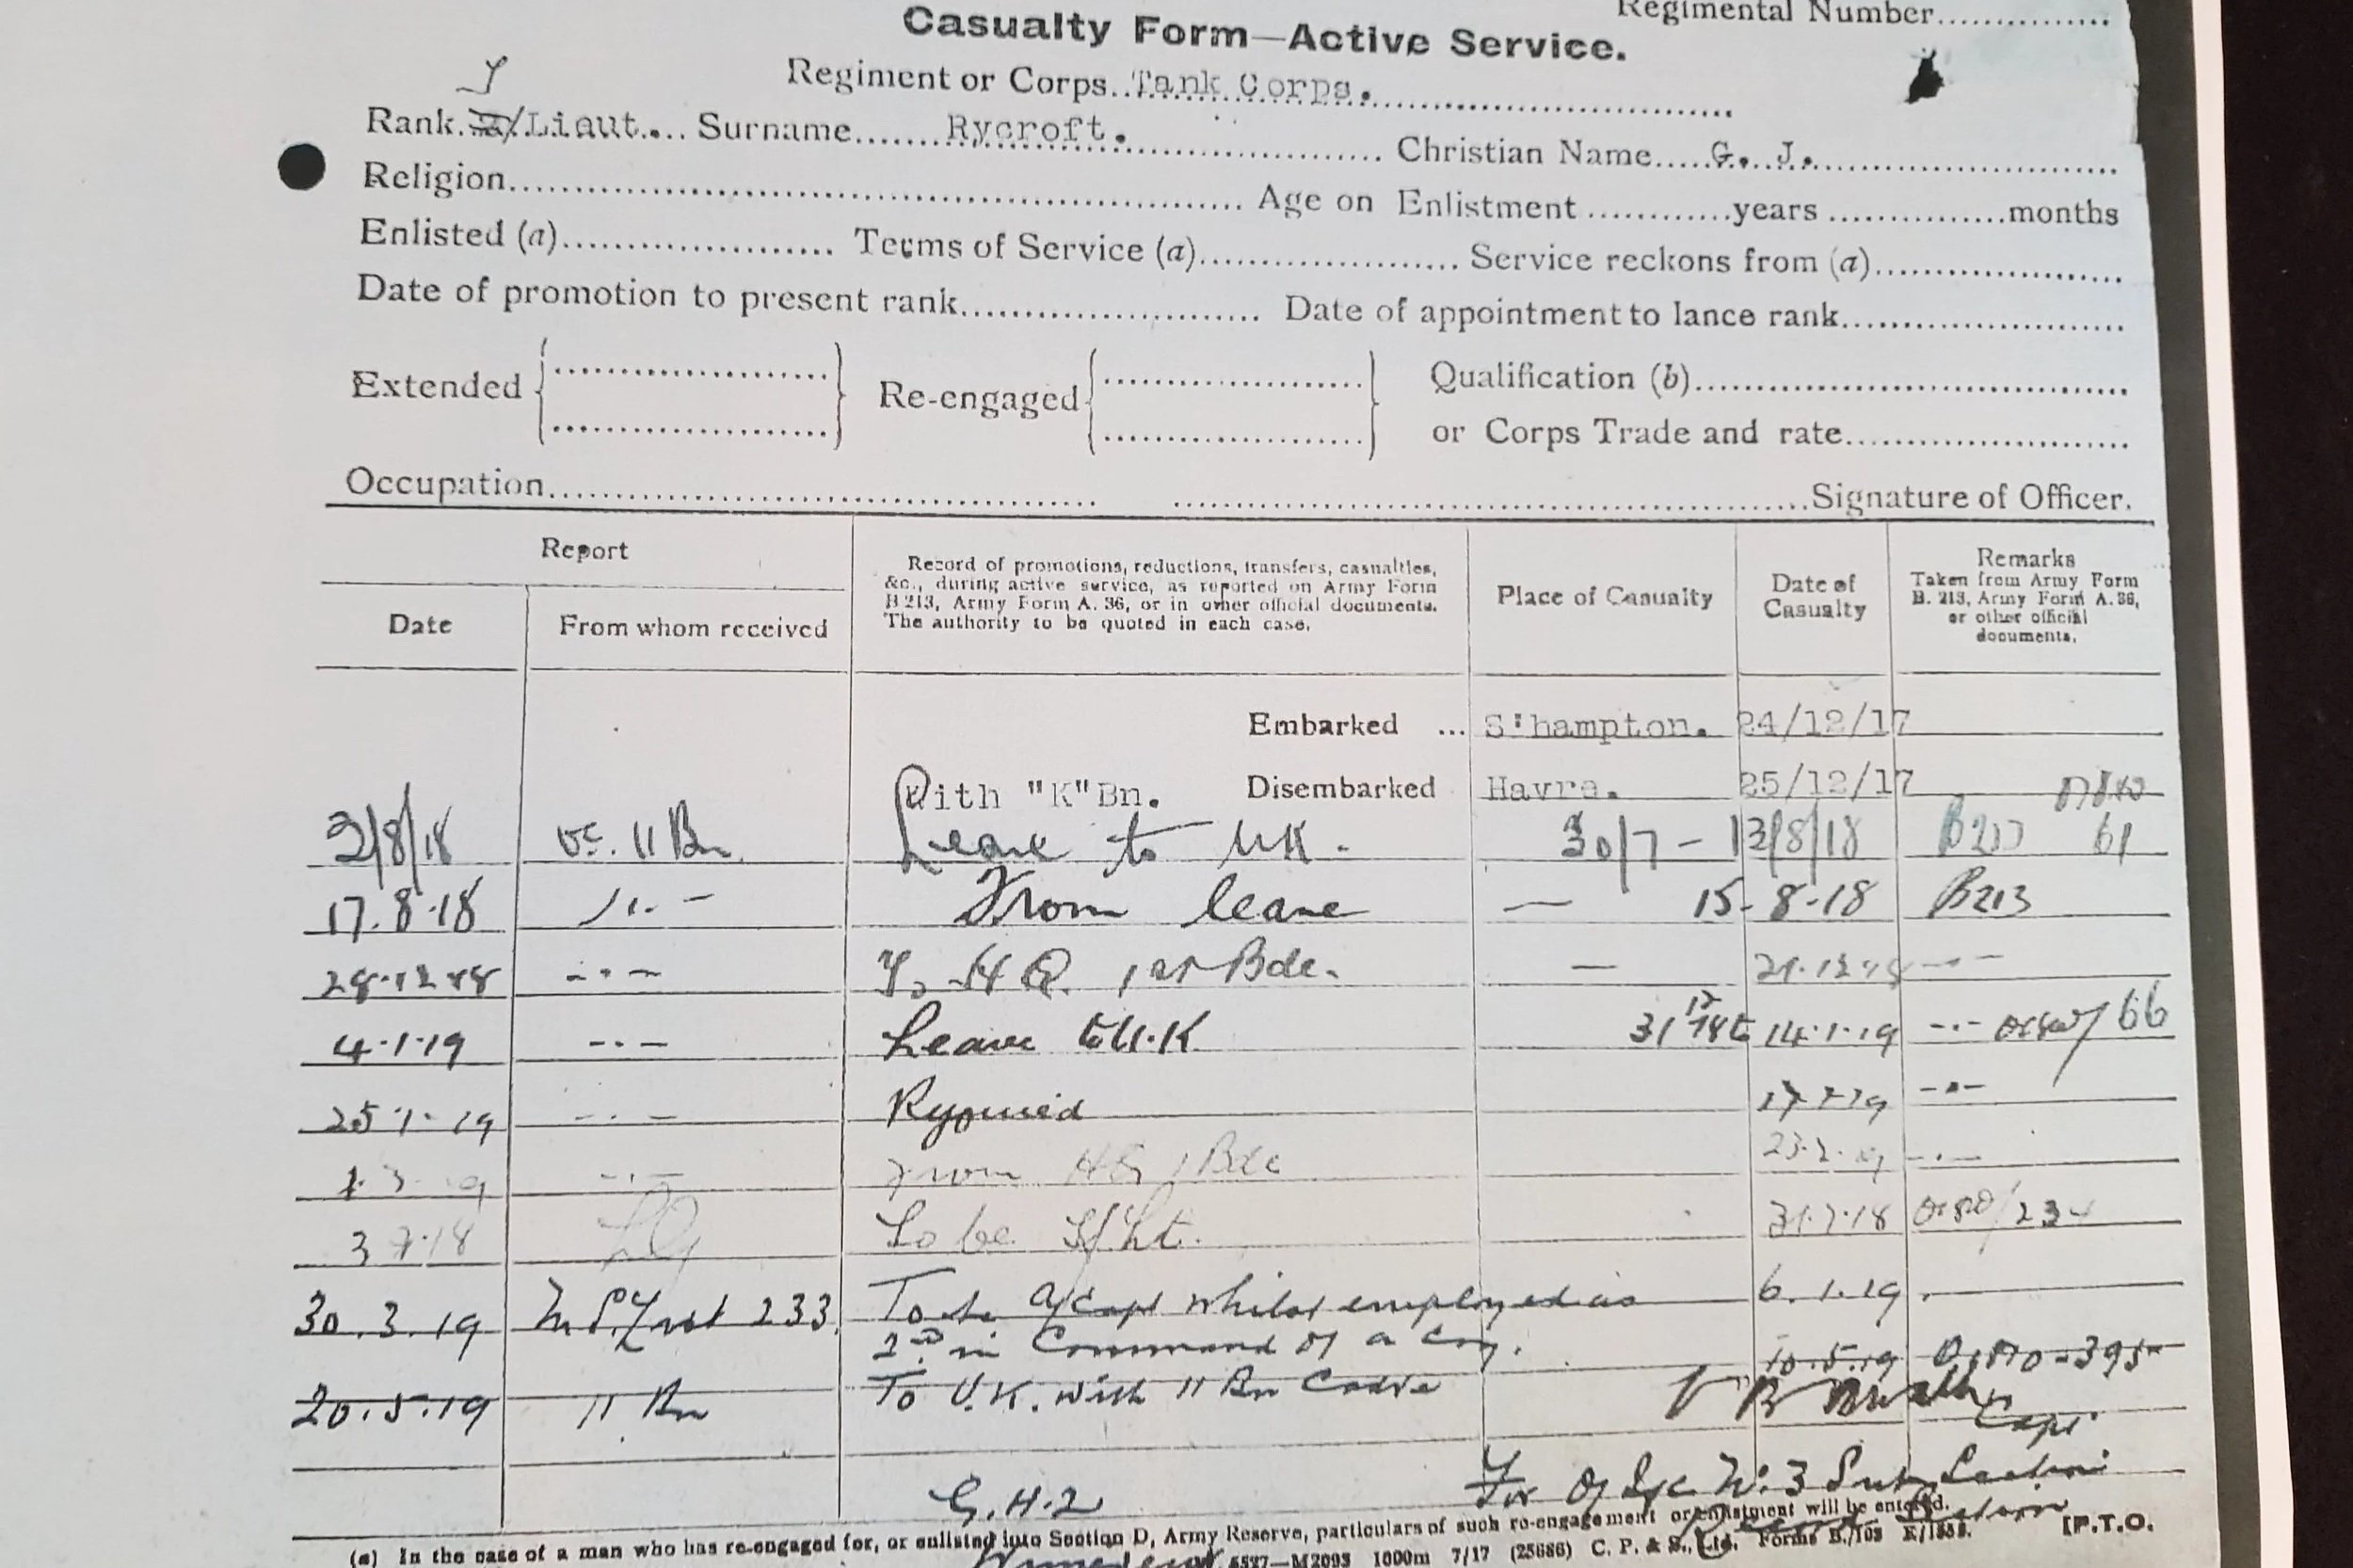 Regimental Number...............
Casualty Form—Active Service.
Regiment or Corps..Tank Corps.
T
Rank. 2/Lieut.... Surname....... Rycroft. Christian Name.....G. J.
Religion.......... Age on Enlistment ............years ...............months
Enlisted (a).......... Terms of Service (a).......... Service reckons from (a)..........
Date of promotion to present rank.......... Date of appointment to lance rank..........
Extended Re-engaged Qualification (b)..........
or Corps Trade and rate..........
Occupation.......... Signature of Officer.
Report
Date From whom received
Record of promotions, reductions, transfers, casualties, &c., during active service, as reported on Army Form B 213, Army Form A. 36, or in other official documents. The authority to be quoted in each case.
Place of Casualty
Date of Casualty
Remarks
Taken from Army Form B. 213, Army Form A. 36, or other official documents.
Embarked ... S'hampton. 24/12/17
With "K"Bn. Disembarked Havre. 25/12/17
2/8/18 11 Bn Leave to UK. 30/7 - 13/8/18 B213 61
17.8.18 From leave — 15-8-18 B213
28.12.18 To H Q. 1st Bde. —
4.1.19 Leave to U.K 31/12/18 to 14.1.19 66
25.1.19 Rejoined
From HQ 1 Bde 23.2.19
3 7.18 LG To be T/Lt. 31.7.18 234
30.3.19 233 To be a/Capt whilst employed as 6.1.19
2nd in Command of a Coy.
20.5.19 11 Bn To U.K. with 11 Bn Cadre 10.5.19 395
Capt
G.H.2
For O i/c No. 3 Sub Section
(a) In the case of a man who has re-engaged for, or enlisted into Section D, Army Reserve, particulars of such re-engagement or enlistment will be entered.
[P.T.O.
M2093 1000m 7/17 (25686) C. P. & S., Ltd. Forms B./103 E/1838.